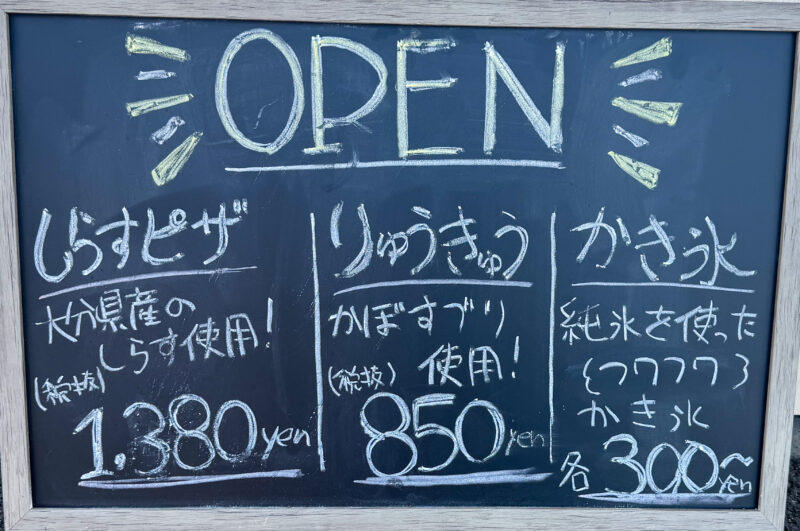 OPEN
しらすピザ
大分県産の
しらす使用!
(税抜)
1.380yen
りゅうきゅう
かぼすブリ
使用!
(税抜)
850yen
かき氷
純氷を使った
{フワフワ}
かき氷
各300~yen